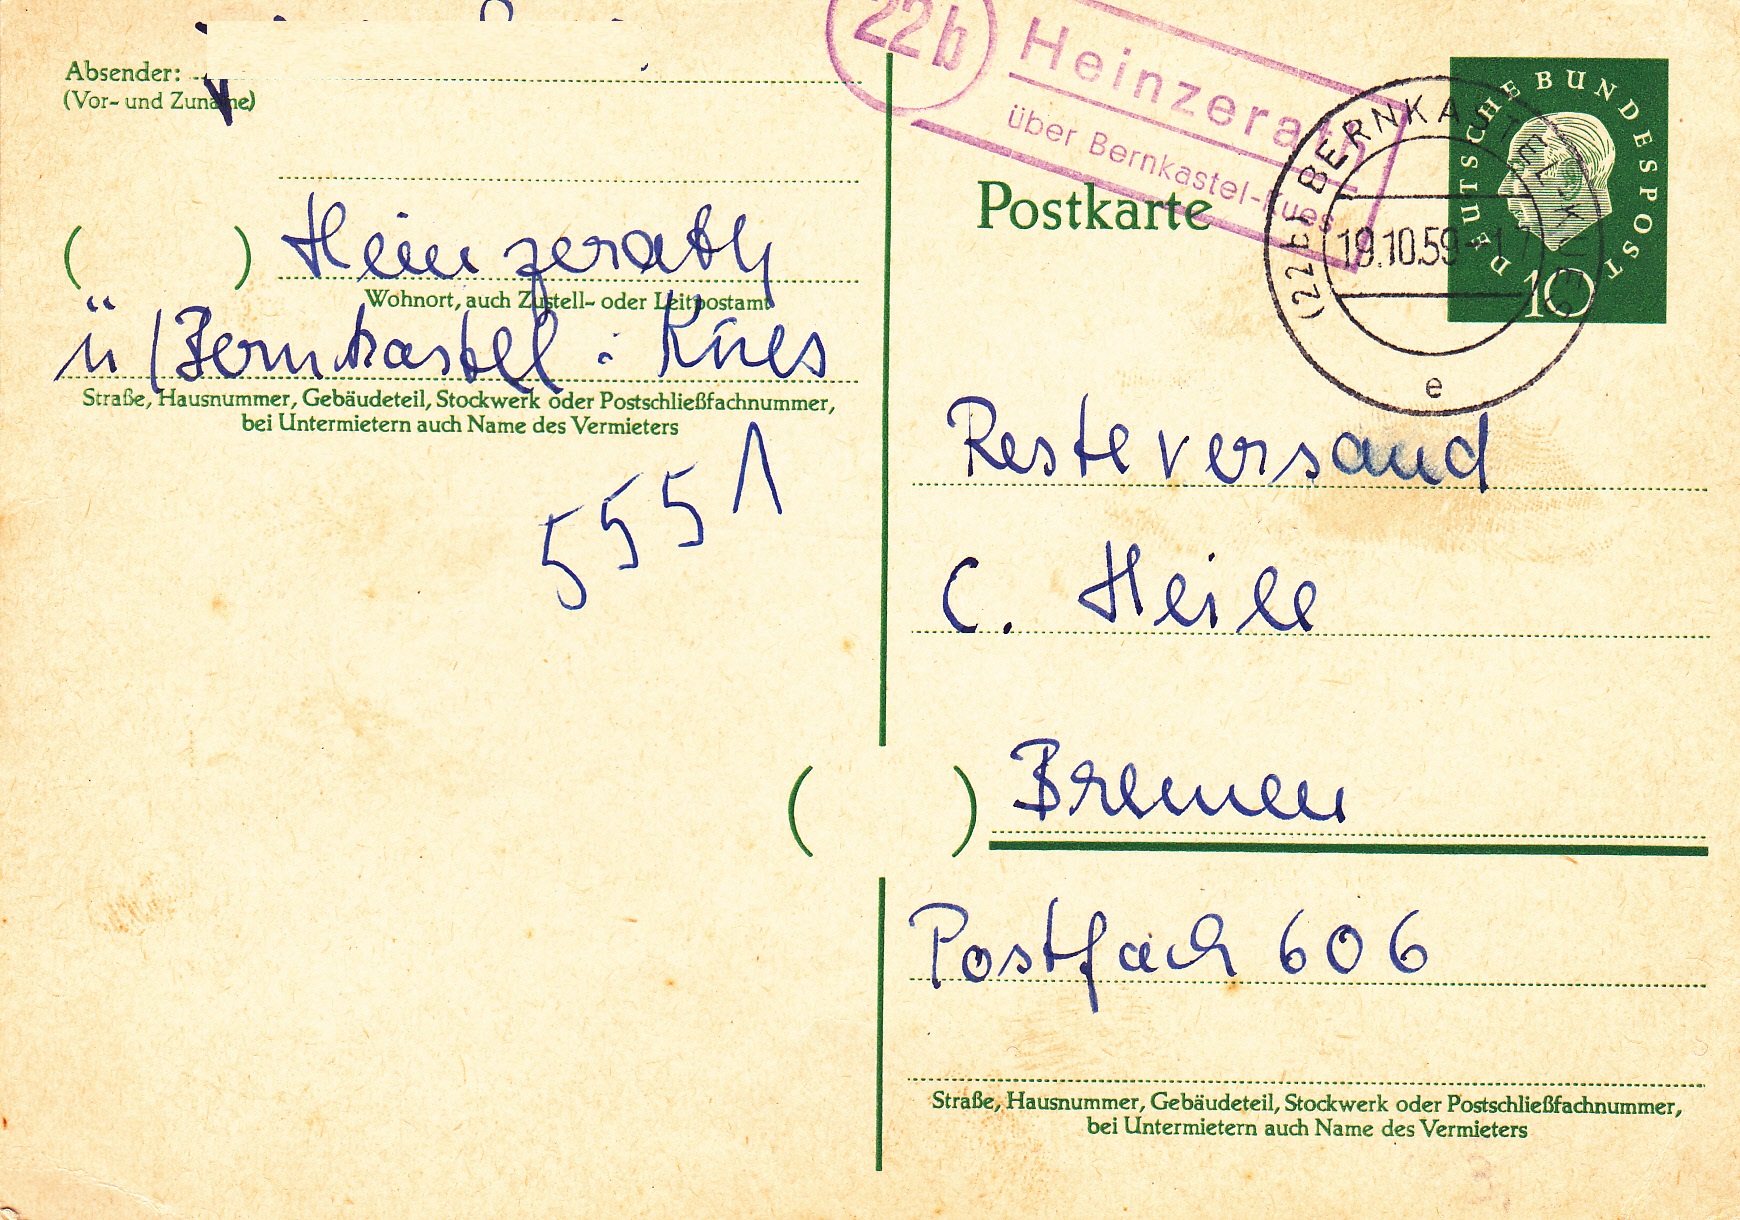 Absender:
(Vor- und Zuname)
Heinzerath
Wohnort, auch Zustell- oder Leitpostamt
ü/Bernkastel-Kues
Straße, Hausnummer, Gebäudeteil, Stockwerk oder Postschließfachnummer,
bei Untermietern auch Name des Vermieters
5551
22b
Heinzerath
über Bernkastel-Kues
Postkarte
(22b) BERNKASTEL-KUES
19.10.59
e
DEUTSCHE BUNDESPOST
10
Resteversand
C. Heile
Bremen
Postfach 606
Straße, Hausnummer, Gebäudeteil, Stockwerk oder Postschließfachnummer,
bei Untermietern auch Name des Vermieters